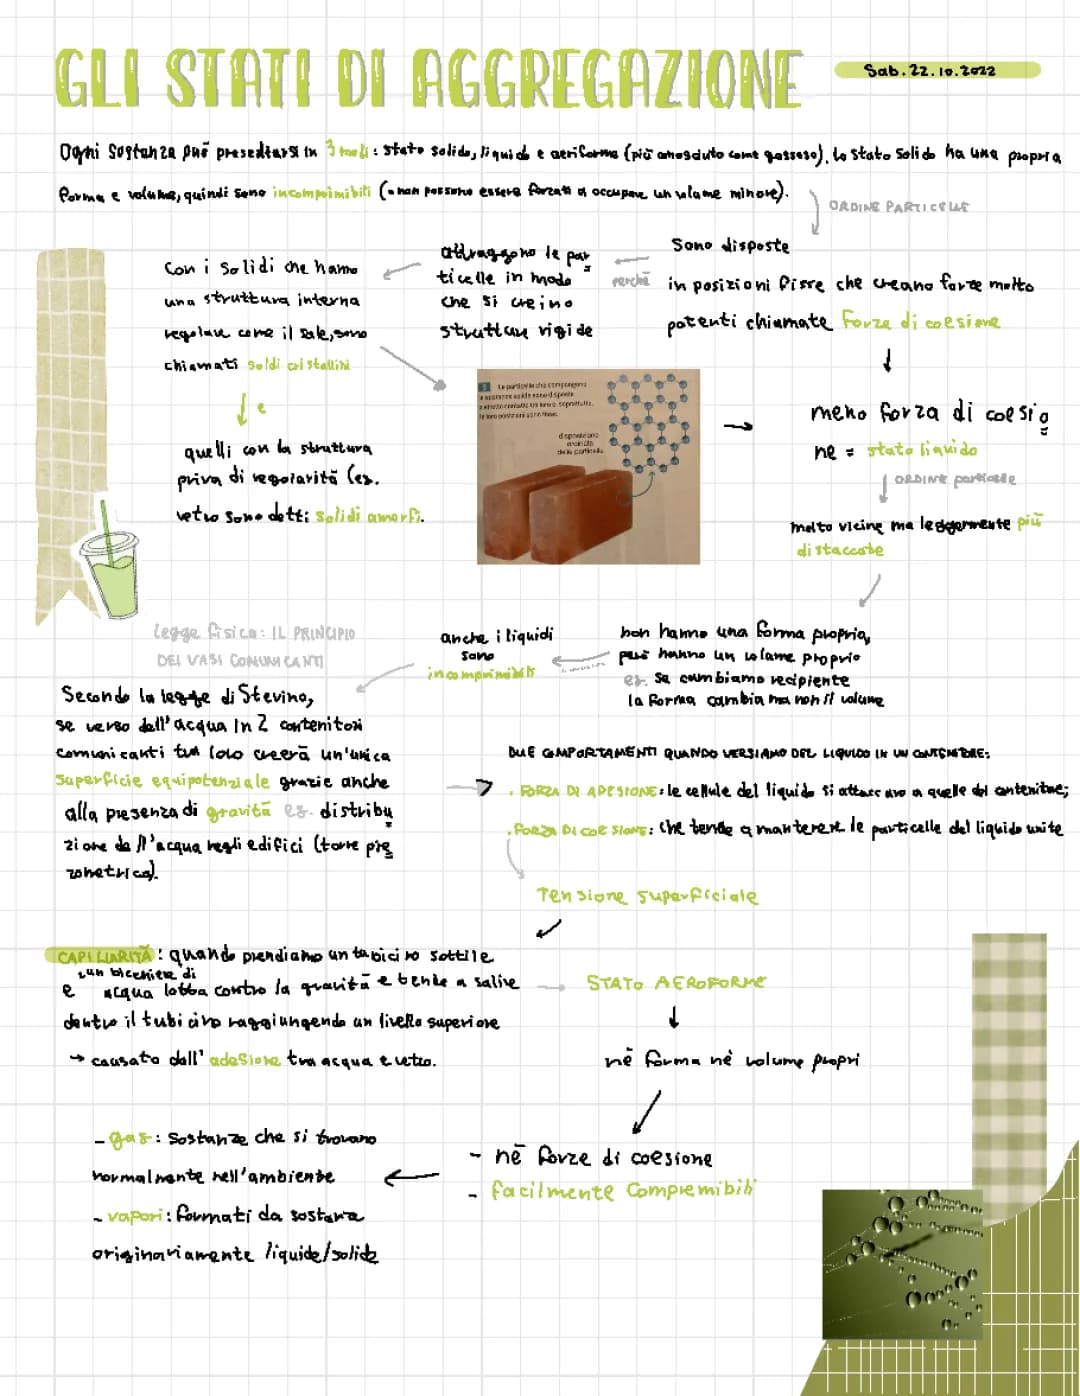 GLI STATI DI AGGREGAZIONE
Sab. 22.10.2022
Ogni Sostanza può presentarsi in 3 modi: stato solido, liquido e aeriforme (più conosciuto come gassoso). lo stato solido ha una propria
forma e volume, quindi sono incomprimibili (non possono essere forzati a occupare un volume minore).
ORDINE PARTICELLE
Sono disposte
in posizioni fisse che creano forze molto
potenti chiamate forze di coesione
perchè
attraggono le par
ticelle in modo
che si creino
strutture rigide
Con i solidi che hanno
una struttura interna
regolare come il sale, sono
chiamati solidi cristallini
e
quelli con la struttura
priva di regolarità (es.
vetro sono detti solidi amorfi.
Le particelle che compongono
le sostanze solide sono disposte
a stretto contatto tra loro e, soprattutto,
le loro posizioni sono fisse.
disposizione
ordinata
delle particelle
meno forza di coesio
ne = stato liquido
ORDINE particelle
molto vicine ma leggermente più
distaccate
non hanno una forma propria,
però hanno un volume proprio
es. se cambiamo recipiente
la forma cambia ma non il volume
anche i liquidi
sono
incomprimibili
legge fisica: IL PRINCIPIO
DEI VASI COMUNICANTI
Secondo la legge di Stevino,
se verso dell'acqua in 2 contenitori
comunicanti tra loro creerà un'unica
superficie equipotenziale grazie anche
alla presenza di gravità es. distribu
zione dell'acqua negli edifici (torre pie
zometrica).
DUE COMPORTAMENTI QUANDO VERSIAMO DEL LIQUIDO IN UN CONTENITORE:
. FORZA DI ADESIONE: le cellule del liquido si attaccano a quelle del contenitore;
. FORZA DI COESIONE: che tende a mantenere le particelle del liquido unite
Tensione superficiale
CAPILLARITÀ: quando prendiamo un tubicino sottile
e un bicchiere di acqua lotta contro la gravità e tende a salire
dentro il tubicino raggiungendo un livello superiore
→ causato dall'adesione tra acqua e vetro.
STATO AEROFORME
nè forma nè volume propri
- nè forze di coesione
- facilmente Compremibili
- gas: Sostanze che si trovano
normalmente nell'ambiente
- vapori: formati da sostanze
originariamente liquide/solide